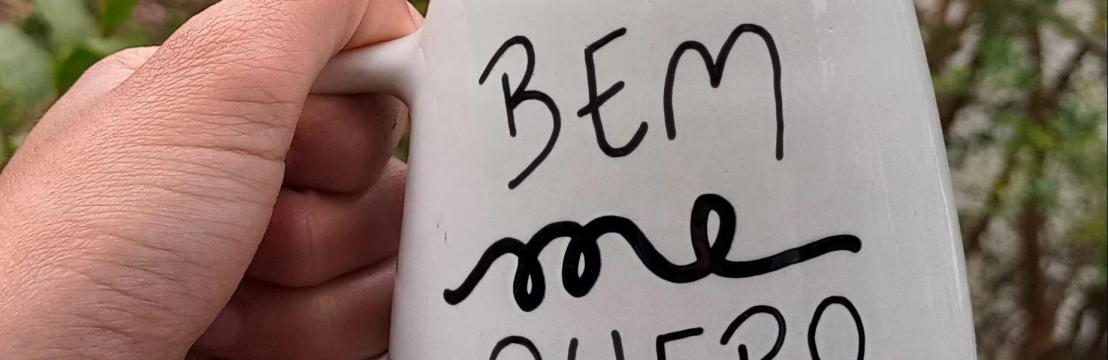 BEM
me
QUERO